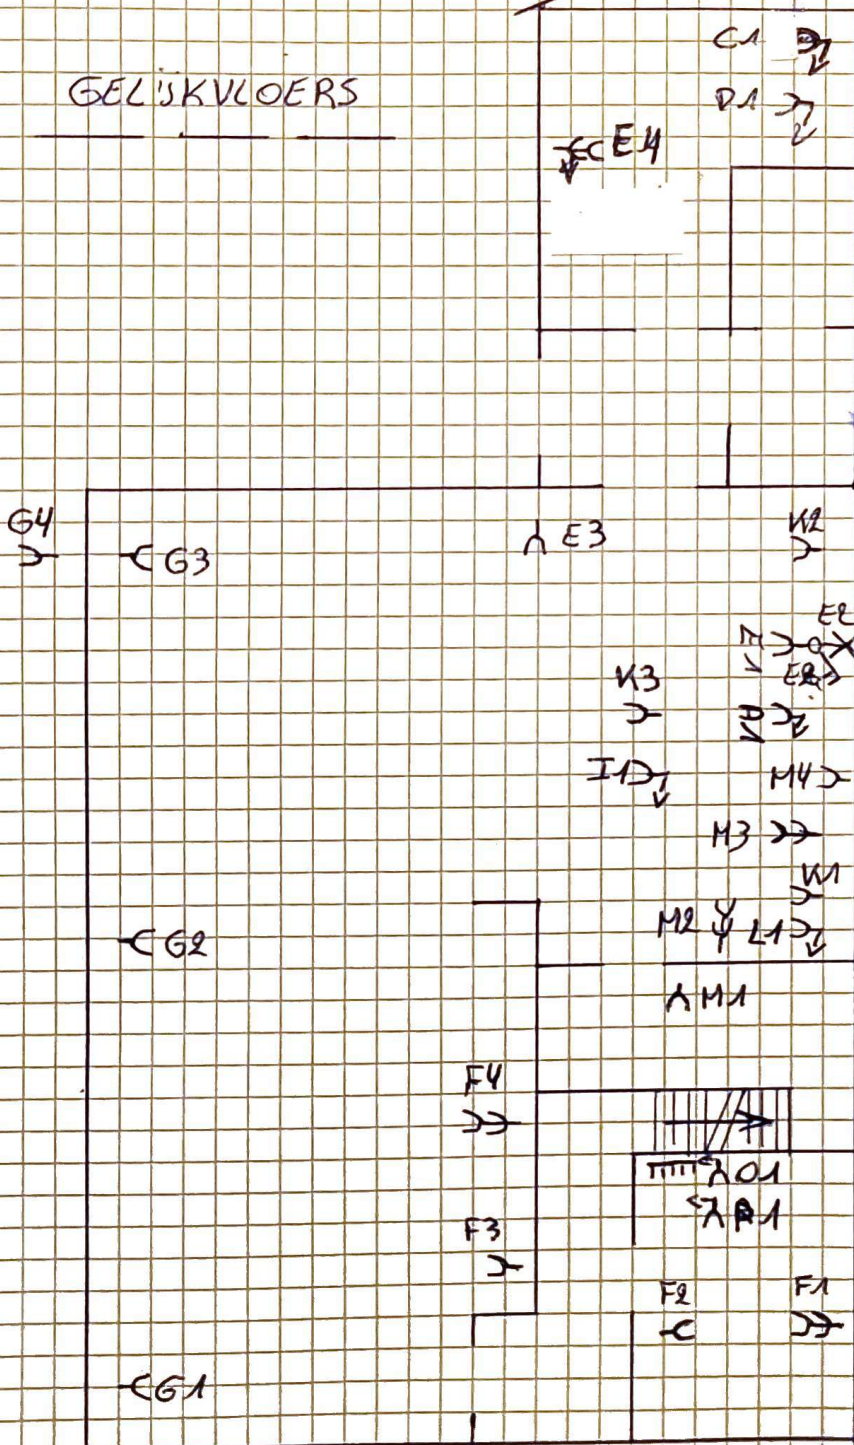 GELIJKVLOERS
C1
D1
E4
G4
G3
E3
K2
E2
K3
I1
M4
M3
K1
M2
L1
G2
M1
F4
O1
F3
F2
F1
G1